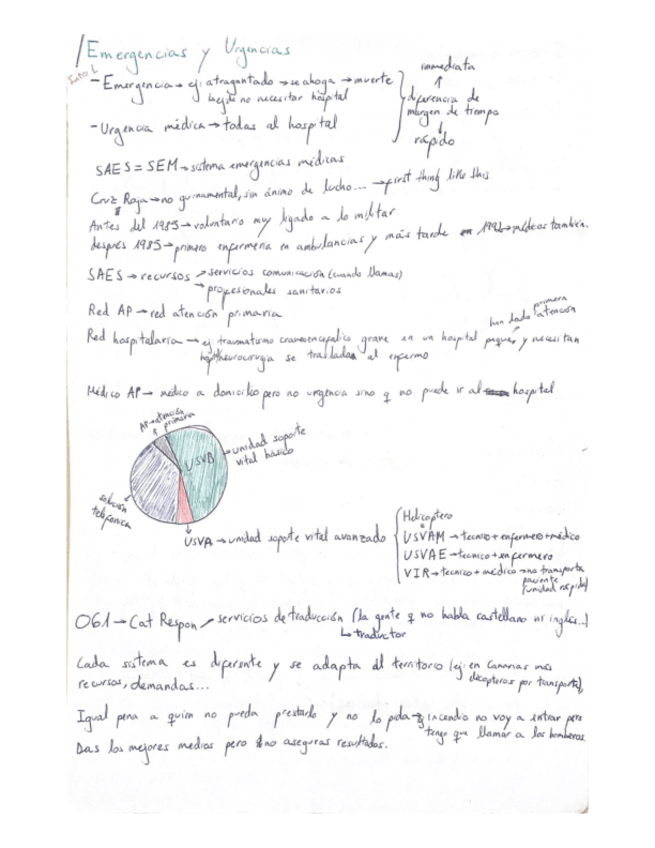 Emergencias y Urgencias
- Emergencia → ej atragantado → se ahoga → muerte
no necesitar hospital
inmediata
diferencia de
margen de tiempo
rápido
- Urgencia médica → todas al hospital
SAES = SEM → sistema emergencias médicas
Cruz Roja → no gurnamental, sin ánimo de lucho... → first thing like this
Antes del 1985 → voluntario muy ligado a lo militar
después 1985 → primero enfermeria en ambulancias y más tarde en 1992 → médicos también.
SAES → recursos → servicios comunicación (cuando llamas)
→ profesionales sanitarios
Red AP → red atención primaria
primera
han dado atención
Red hospitalaria → ej traumatismo craneoencefalico grave en un hospital peque y necesitan
neurocirugia se traslada al enfermo
Médico AP → médico a domicilio pero no urgencia sino q no puede ir al hospital
AP → atención
primaria
USVB
→ unidad soporte
vital básico
solución
telefonica
USVA → unidad soporte vital avanzado
Helicoptero
USVAM → tecnico + enfermero + médico
USVAE → tecnico + enfermero
VIR → tecnico + médico → no transporta
paciente
(unidad rápida)
061 → Cat Respon → servicios de traducción (la gente q no habla castellano ni inglés...)
↳ traductor
Cada sistema es diferente y se adapta al territorio (ej: en Canarias más
recursos, demandas...
elicopteros por transporte),
Igual pena a quim no pueda prestarlo y no lo pida → ej incendio no voy a entrar pero
tengo que llamar a los bomberos.
Das los mejores medios pero no aseguras resultados.